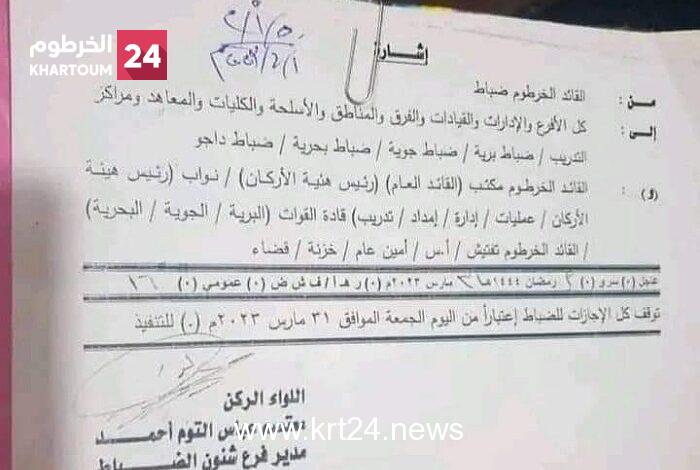 الخرطوم
KHARTOUM
24
إشارة
من : القائد الخرطوم ضباط
إلى : كل الأفرع والإدارات والقيادات والفرق والمناطق والأسلحة والكليات والمعاهد ومراكز
التدريب / ضباط برية / ضباط جوية / ضباط بحرية / ضباط داجو
(و) : القائد الخرطوم مكتب (القائد العام) (رئيس هئية الأركان) / نواب (رئيس هيئة
الأركان / عمليات / إدارة / إمداد / تدريب) قادة القوات (البرية / الجوية / البحرية)
/ القائد الخرطوم تفتيش / أ.س / أمين عام / خزنة / قضاء
عاجل (٠) سري (٠) رمضان ١٤٤٤هـ ٣١ مارس ٢٠٢٣م (٠) ر هـ أ / ف ش ض (٠) عمومي (٠) ١٦
توقف كل الإجازات للضباط إعتباراً من اليوم الجمعة الموافق ٣١ مارس ٢٠٢٣م (٠) للتنفيذ
اللواء الركن
س التوم أحمـــد
www.krt24.news
مدير فرع شئون الضباط